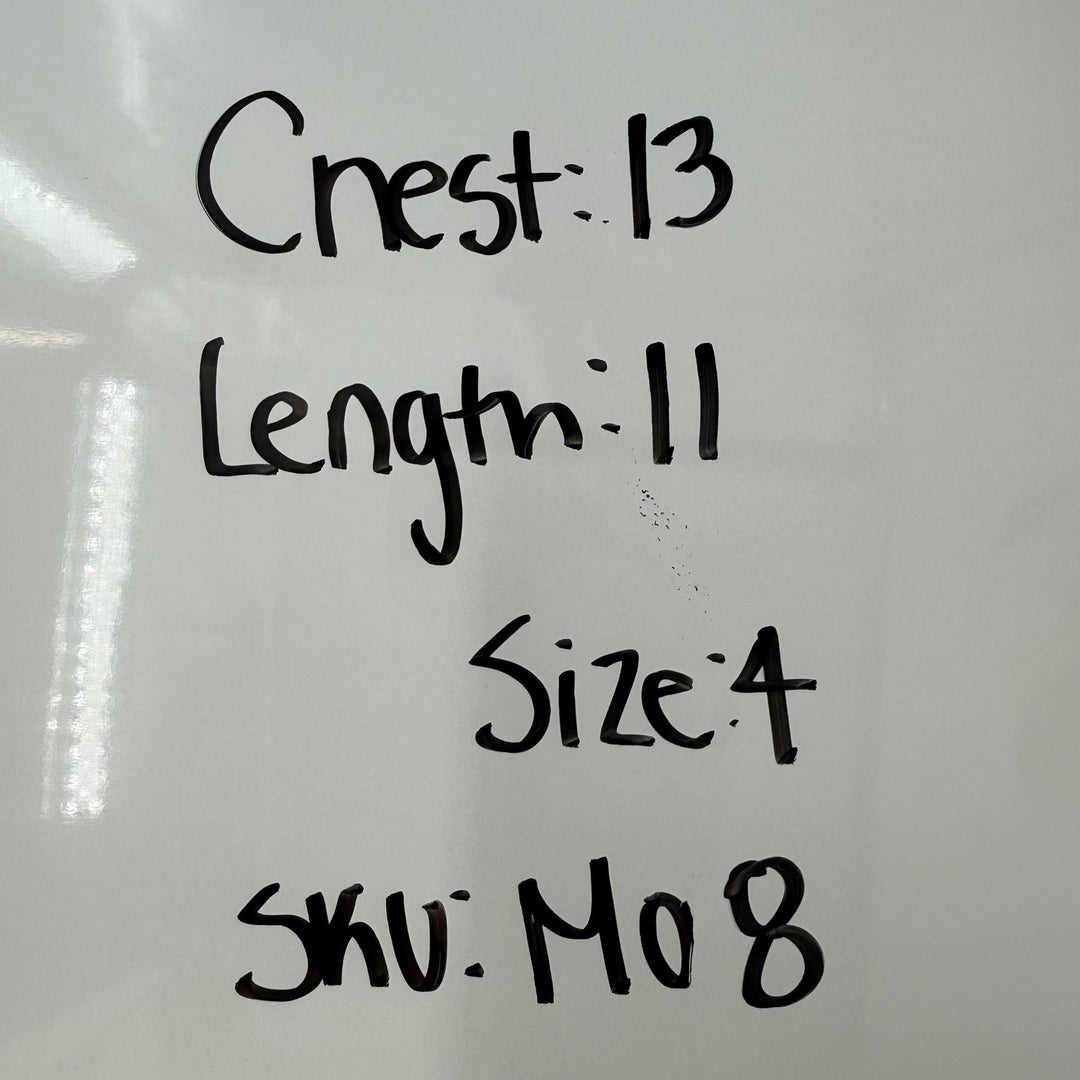 Chest: 13
Length: 11
Size: 4
SKU: M08